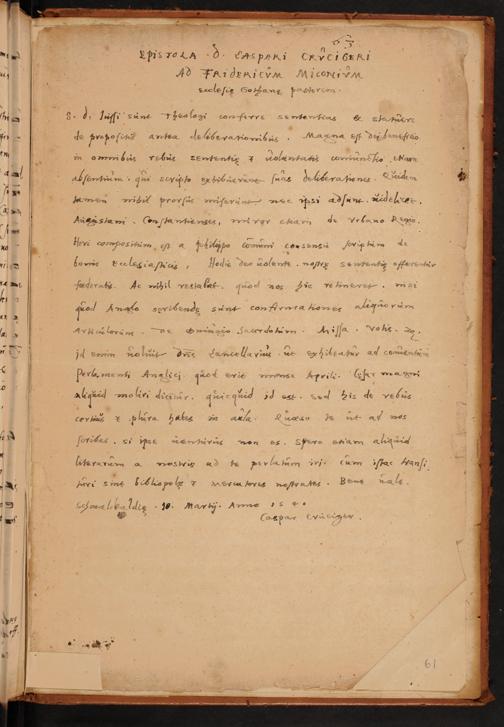 63
EPISTOLA D. CASPARI CRŨCIGERI
AD FRIDERICVM MICONIVM
ecclesię Gothanę pastorem.
S. d. Iussi sunt Theologi conferre sententias & statuere
de propositis antea deliberationibus. Magna est dei beneficio
in omnibus rebus sententię & voluntatis coniunctio. Nam
absentium, qui scripto exhibuerunt suas deliberationes. Quidem
tamen nihil prorsus miserunt nec ipsi adsunt. videlicet
Augustani. Constantienses, miror etiam de Vrbano Regio.
Heri compositum est a philippo communi consensu scriptum de
bonis Ecclesiasticis, Hodie deo volente, nostrę sententię offerentur
foederatis. Ac nihil restabat, quod nos hic retineret, nisi
quod Anglo scribendę sunt confirmationes aliquorum
Articulorum. De coniugio Sacerdotum. Missa. Votis.
id enim voluit Dns Cancellarius, ut exhibeatur ad conventum
Parlamenti Anglici, quod erit mense Aprili. magni
aliquid moliri dicitur, quicquid id est. sed his de rebus
certius & plura habes in aula. Quaeso te ut ad nos
scribas, si ipse venturus non es. spero etiam aliquid
literarum a nostris ad te perlatum iri. cum istac transi
turi sint bibliopolę & mercatores nostrates. Bene vale.
Schmalkaldię. 10. Martij. Anno 1540
Caspar Cruciger.
61